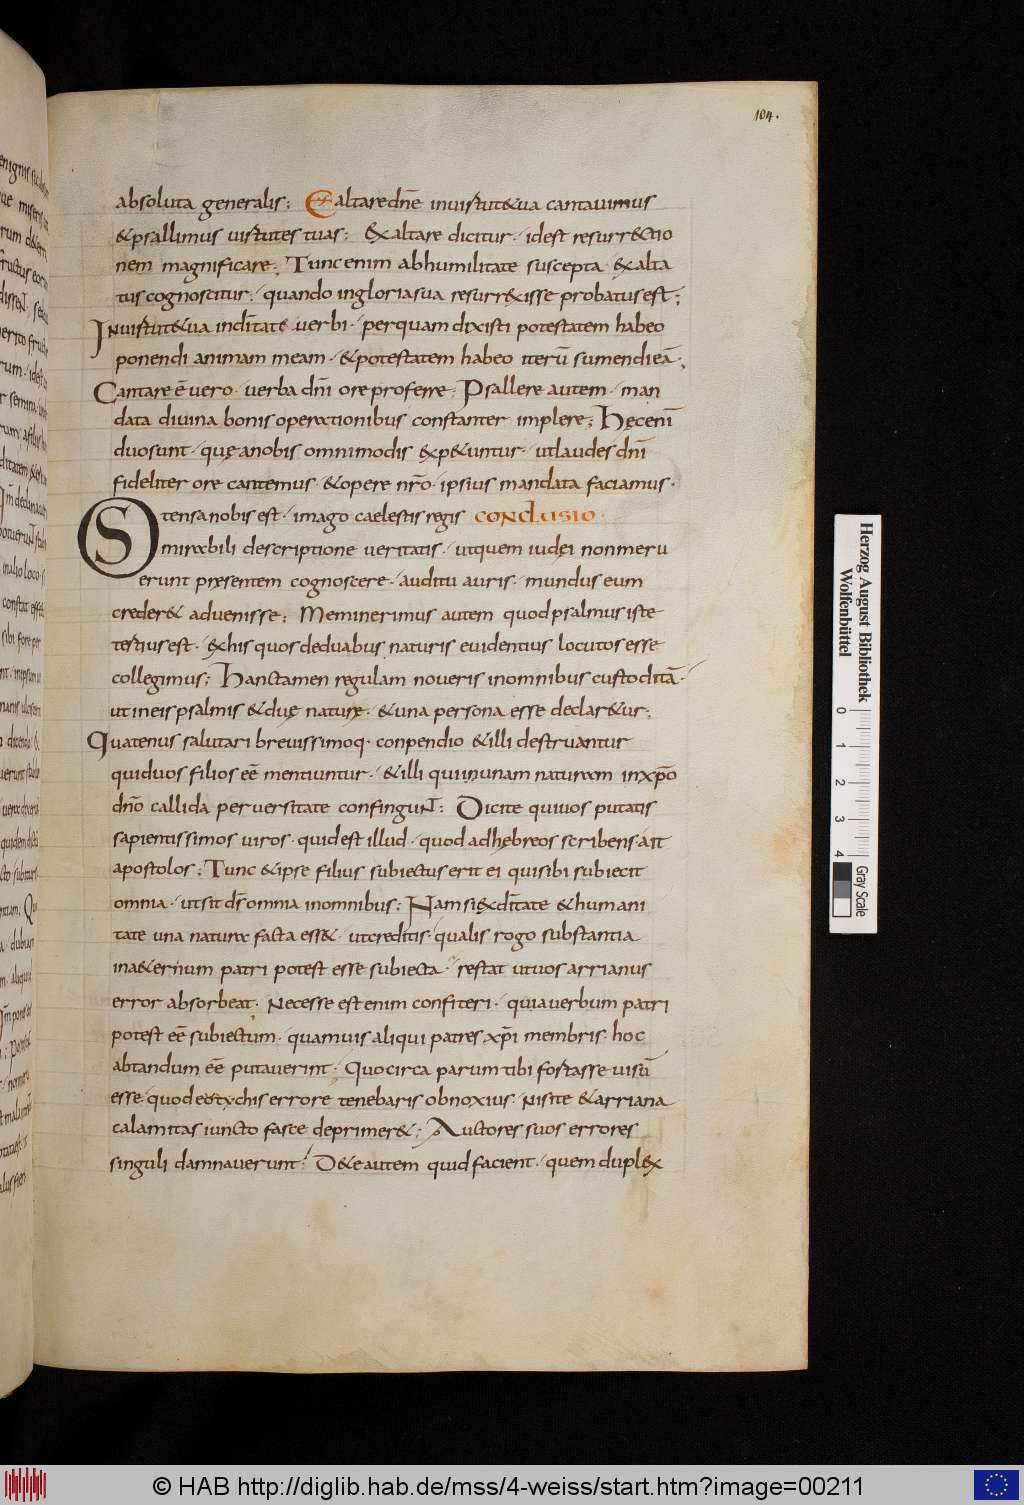 104.
absoluta generalis; Exaltare dn̄e in uirtut& ua cantauimus
& psallimus uirtutes tuas; Exaltare dicitur· id est resurr&ctio
nem magnificare; Tunc enim ab humilitate suscepta exalta
tus cognoscitur; quando in gloria sua resurr&xisse probatus est;
In uirtut& ua indiuitate uerbi· per quam dixisti potestatem habeo
ponendi animam meam· & potestatem habeo iterū sumendi eā;
Cantare ē uero· uerba dn̄i ore proferre; Psallere autem· man
data diuina bonis operationibus constanter implere; Hęc enī
duo sunt· quę a nobis omnimodis exp&untur· ut laudes dn̄i
fideliter ore cantemus· & opere nr̄o· ipsius mandata faciamus·
Ostensa nobis est· imago caelestis regis CONCLUSIO
mirabili descriptione ueritatis· ut quem iudęi non meru
erunt praesentem cognoscere· auditu auris· mundus eum
creder& aduenisse; Meminerimus autem quod psalmus iste
tertius est· ex his quos de duabus naturis euidentius locutos esse
collegimus; Hanc tamen regulam noueris in omnibus custoditā·
ut in eis psalmis & duę naturę· & una persona esse declar&ur;
Quatenus salutari breuissimoq· conpendio & illi destruantur
qui duos filios eē mentiuntur· & illi qui in unam naturam in xp̄o
dn̄o callida peruersitate confingunt; Dicite qui uos putatis
sapientissimos uiros· quid est illud· quod ad hebreos scribens ait
apostolos; Tunc & ipse filius subiectus erit ei qui sibi subiecit
omnia· ut sit ds̄ omnia in omnibus; Nam si ex deitate & humani
tate una natura facta ess&· ut creditis· qualis rogo substantia
in a&ernum patri potest esse subiecta· restat ut uos arrianus
error absorbeat· Necesse est enim confiteri· quia uerbum patri
potest eē subiectum· quamuis aliqui patres xp̄i membris hoc
abtandum eē putauerint· Quocirca parum tibi fortasse uisū
esse· quod eutychis errore tenebaris obnoxius· nisi te & arriana
calamitas iuncto fasce deprimer&; Auctores suos errores
singuli damnauerunt· D& e autem quid facient· quem duplex
Herzog August Bibliothek
Wolfenbüttel
0 1 2 3 4
Gray Scale
© HAB http://diglib.hab.de/mss/4-weiss/start.htm?image=00211